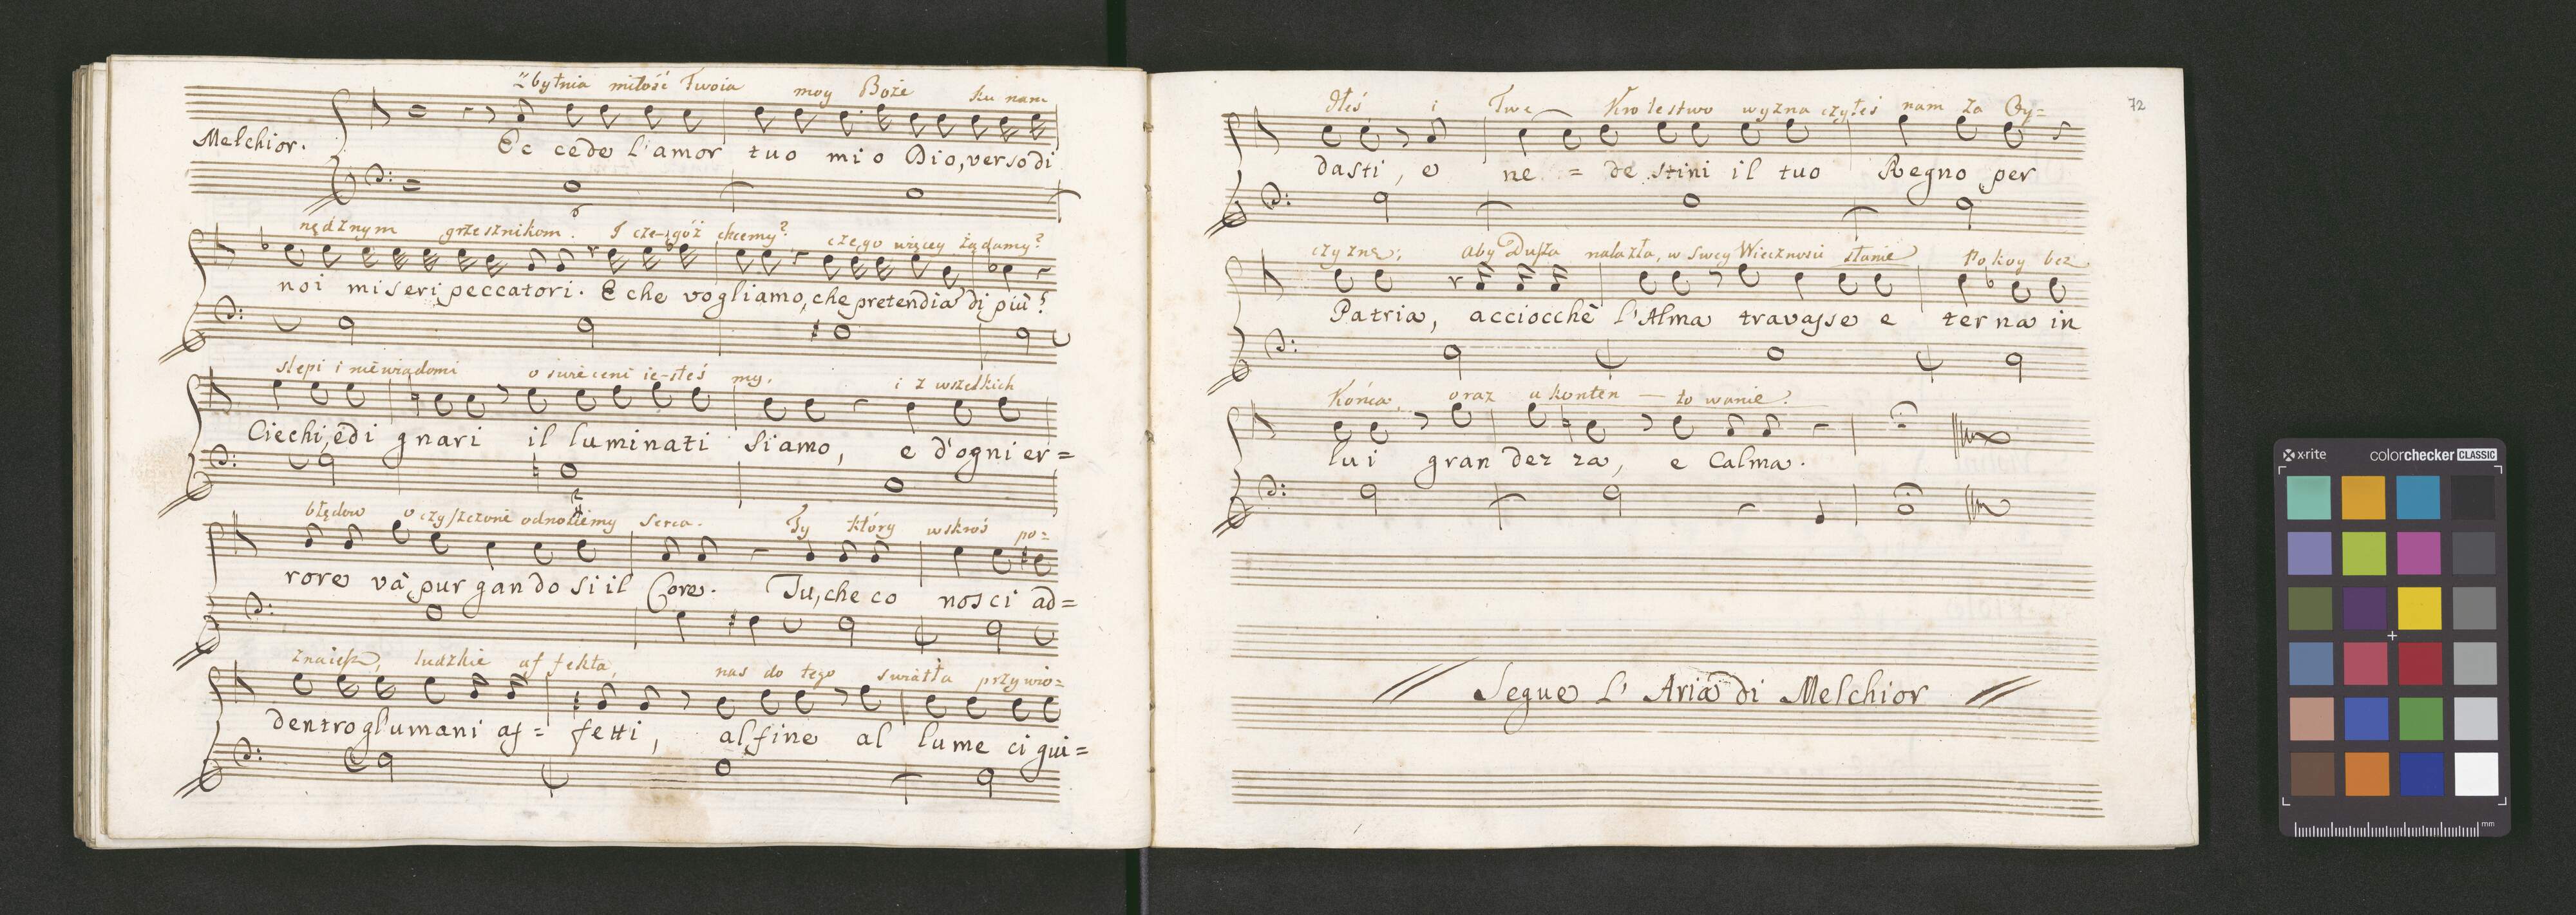 Zbytnia miłość Twoia moy Boże ku nam
Melchior.
Ec cede L'amor tuo mi o Dio, verso di
6
nędznym grzesznikom. I cze-goż chcemy? czego więcey żądamy?
noi miseri peccatori. E che vogliamo, che pretendia di più?
slepi i niewiadomi oswieceni ie-steś my, i z wszelkich
Ciechi, ed i gnari il luminati siamo, e d'ogni er=
błędow oczyszczone odnosiemy serca. Ty ktory wskroś po=
rore và pur gan do si il Core. Tu, che co nos ci ad=
znaiesz, ludzkie af fekta, nas do tego swiatła przywio=
dentro gl'umani af= fetti, alfine al lume ci gui=
72
dłeś i Twe Krolestwo wyzna czyłeś nam za Oy=
dasti, e ne = de stini il tuo Regno per
czyznę; aby Dusza nalazła, w swey Wiecznosci stanie Pokoy bez
Patria, acciocchè l'Alma travasse e ter na in
Końca, oraz u konten — to wanie.
lui gran dez za, e Calma.
Segue L' Aria di Melchior
x-rite colorchecker CLASSIC
mm